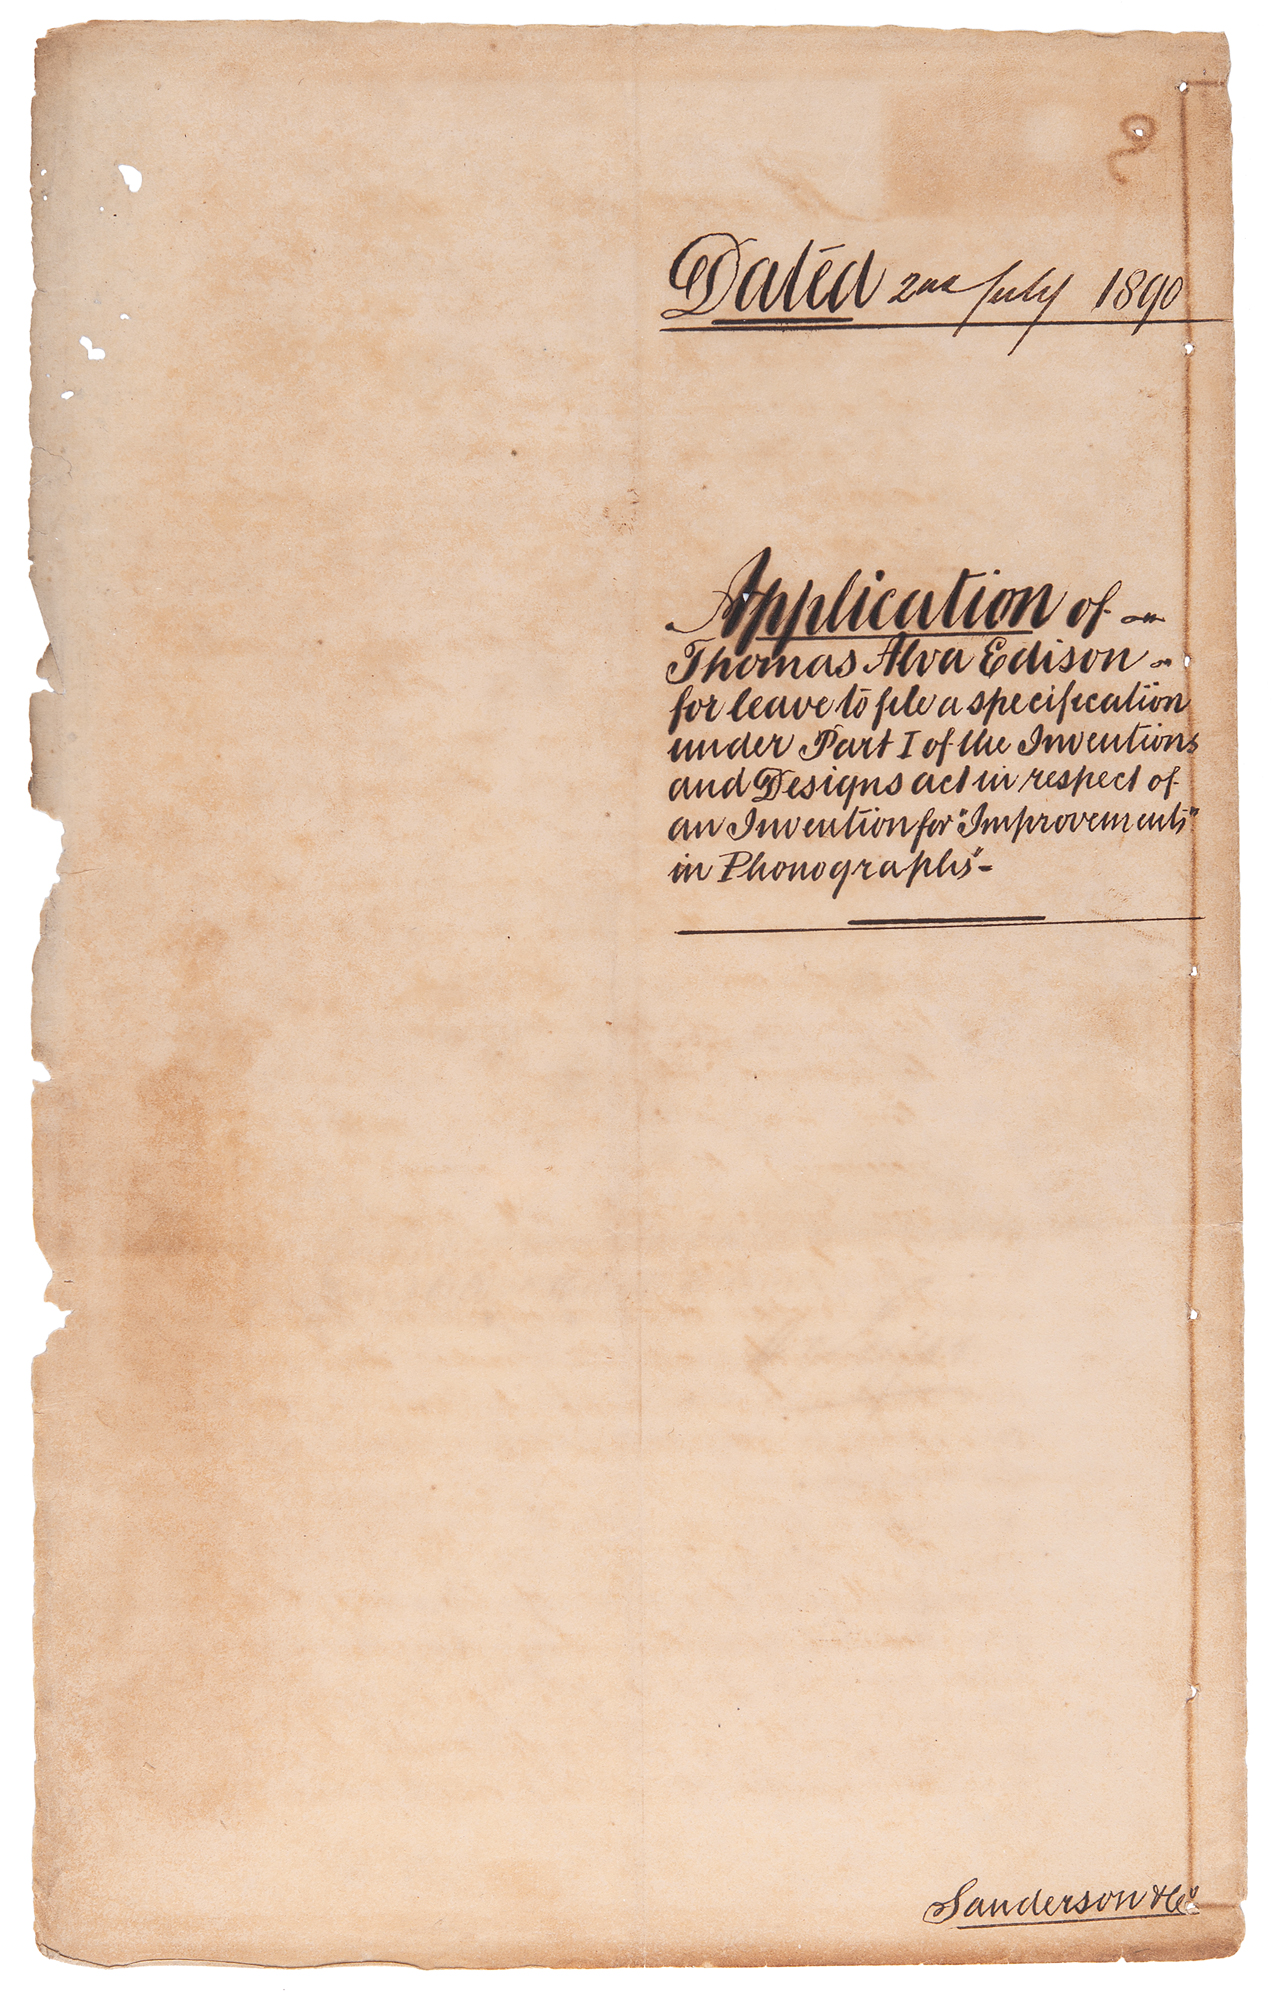 Dated 2nd July 1890
Application of
Thomas Alva Edison
for leave to file a specification
under Part I of the Inventions
and Designs act in respect of
an Invention for "Improvements"
in Phonographs"-
Sanderson & Co